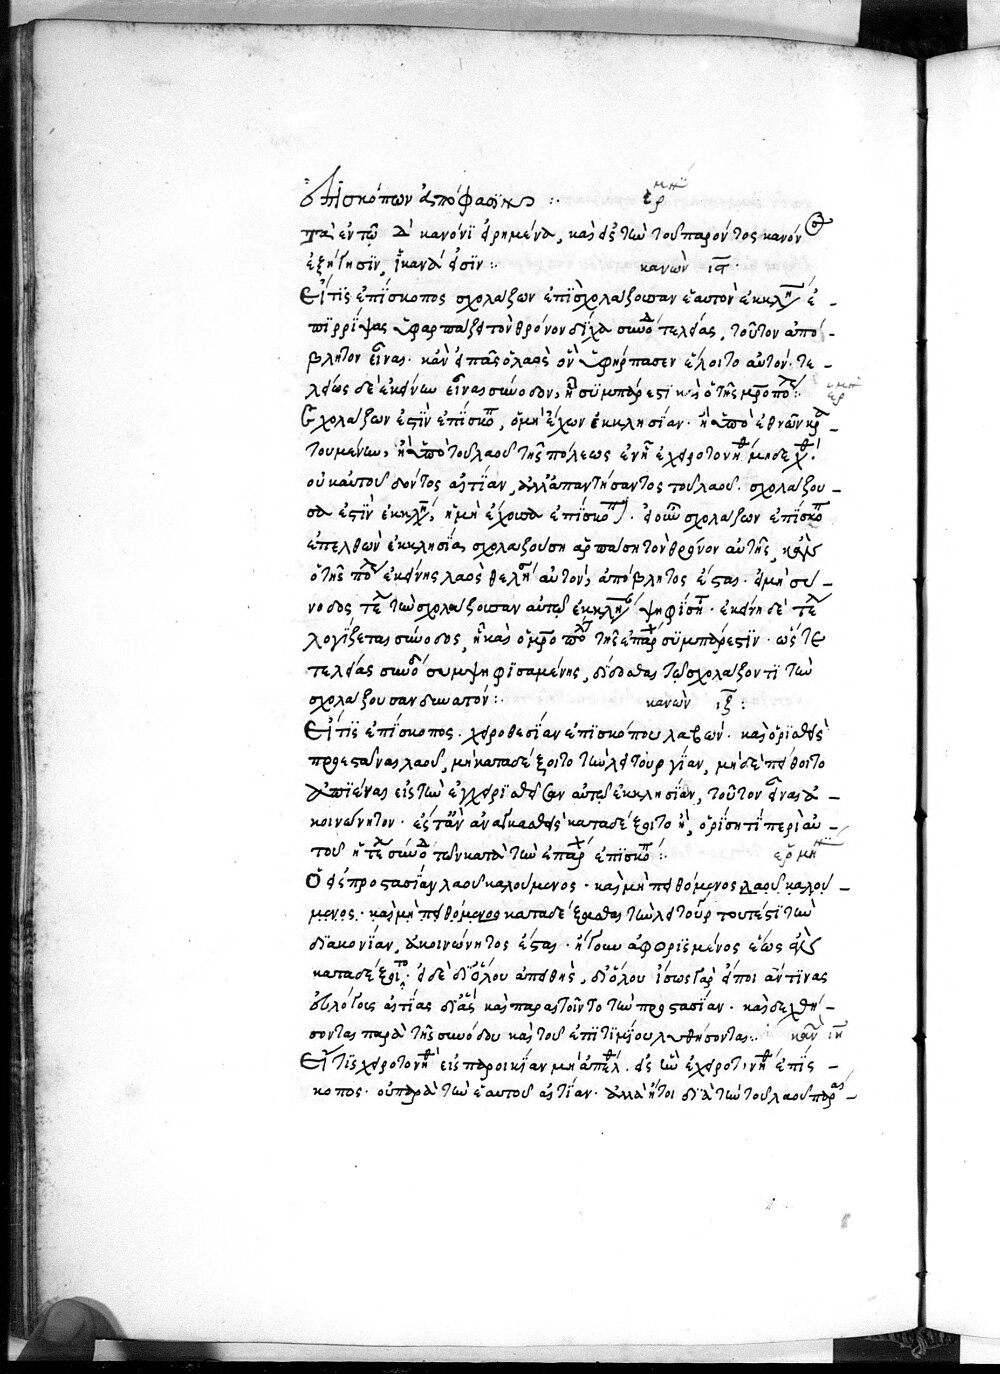 ἐπισκόπων ἀπόφασιν :· ἑρμη
Τὰ ἐν τῷ δ κανόνι εἰρημένα, καὶ εἰς τὴν τοῦ παρόντος κανόν
ἐξήγησιν, ἱκανά εἰσιν :· κανὼν ις·
Εἴ τις ἐπίσκοπος σχολάζων ἐπὶ σχολάζουσαν ἑαυτὸν ἐκκλη ἐ-
πιρρίψας ὑφαρπάζει τὸν θρόνον δίχα συνοδ τελείας, τοῦτον ἀπό-
βλητον εἶναι· κἂν εἰ πᾶς ὁ λαὸς ὃν ὑφήρπασεν ἕλοιτο αὐτόν· τε-
λείως δὲ ἐκείνην εἶναι σύνοδον, ᾗ συμπάρεστι καὶ ὁ τῆς μροπολ :· ερμη
Σχολάζων ἐστὶν ἐπίσκοπ, ὁ μὴ ἔχων ἐκκλησίαν· ἢ ὑπὸ ἐθνῶν κρ
τουμένην, ἢ ὑπὸ τοῦ λαοῦ τῆς πόλεως ἐν ᾗ ἐχειροτονήθ μὴ δεχθ·
οὐκ αὐτοῦ δόντος αἰτίαν, ἀλλ' ἀπαντήσαντος τοῦ λαοῦ. σχολάζου-
σα ἐστὶν ἐκκλη, ἡ μὴ ἔχουσα ἐπίσκοπ. ὁ οὖν σχολάζων ἐπίσκοπ
ἐπελθὼν ἐκκλησίᾳ σχολαζούση ἁρπάση τὸν θρόνον αὐτῆς, κἂν
ὁ τῆς πολ ἐκείνης λαὸς θελήση αὐτόν, ἀπόβλητος ἔσται. εἰ μὴ σύ-
νοδος τελ τὴν σχολάζουσαν αὐτῷ ἐκκλη ψηφίση· ἐκείνη δὲ τελ
λογίζεται σύνοδος, ᾗ καὶ ὁ μροπολ τῆς ἐπαρχ συμπάρεστιν· ὡς τε
τελείας συνοδ συμψηφισαμένης, δίδοται τῷ σχολάζοντι τὴν
σχολάζουσαν δυνατόν :· κανὼν ιζ :
Εἴ τις ἐπίσκοπος· χειροθεσίαν ἐπισκόπου λαβών· καὶ ὁρισθεὶς
προεστάναι λαοῦ, μὴ καταδέξοιτο τὴν λειτουργίαν, μὴ δὲ πείθοιτο
ἀπιέναι εἰς τὴν ἐγχειρισθεῖσαν αὐτῷ ἐκκλησίαν, τοῦτον εἶναι ἀ-
κοινώνητον· ἔς τ' ἂν ἀναγκασθεὶς καταδέξοιτο ἢ, ὁρίση τὶ περὶ αὐ-
τοῦ ἡ τελ συνοδ τῶν κατὰ τὴν ἐπαρχ ἐπισκοπ :· ερμη
Ὁ εἰς προστασίαν λαοῦ καλούμενος· καὶ μὴ πειθόμενος λαοῦ καλού-
μενος· καὶ μὴ πειθόμενος καταδέξασθαι τὴν λειτουρ τουτέστι τὴν
διακονίαν, ἀκοινώνητος ἔσται· ἤγουν ἀφωρισμένος ἕως ἂν
καταδέξοιτο· εἰ δὲ δι' ὅλου ἀπειθής, δι' ὅλου ἴσως γὰρ εἴποι ἄν τινας
εὐλόγους αἰτίας δι' ἃς καὶ παραιτοῖντο τὴν προστασίαν· καὶ δεχθή-
σονται παρὰ τῆς συνόδου καὶ τοῦ ἐπιτιμίου λυθήσονται :· καν ιη
Εἴ τις χειροτονηθ εἰς παροικίαν μὴ ἀπελθ. εἰς ἣν ἐχειροτονήθ ἐπίσ-
κοπος· οὐ παρὰ τὴν ἑαυτοῦ αἰτίαν· ἀλλὰ ἤτοι διὰ τὴν τοῦ λαοῦ παραί-